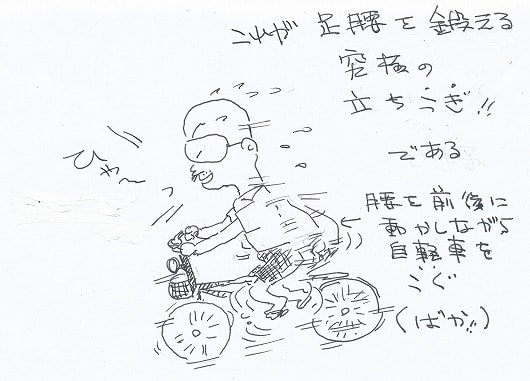 これが 足腰を 鍛える
究極の
立ちこぎ!!
である
ひゃ〜
腰を前後に
動かしながら
自転車を
こぐ
(ばか!!)